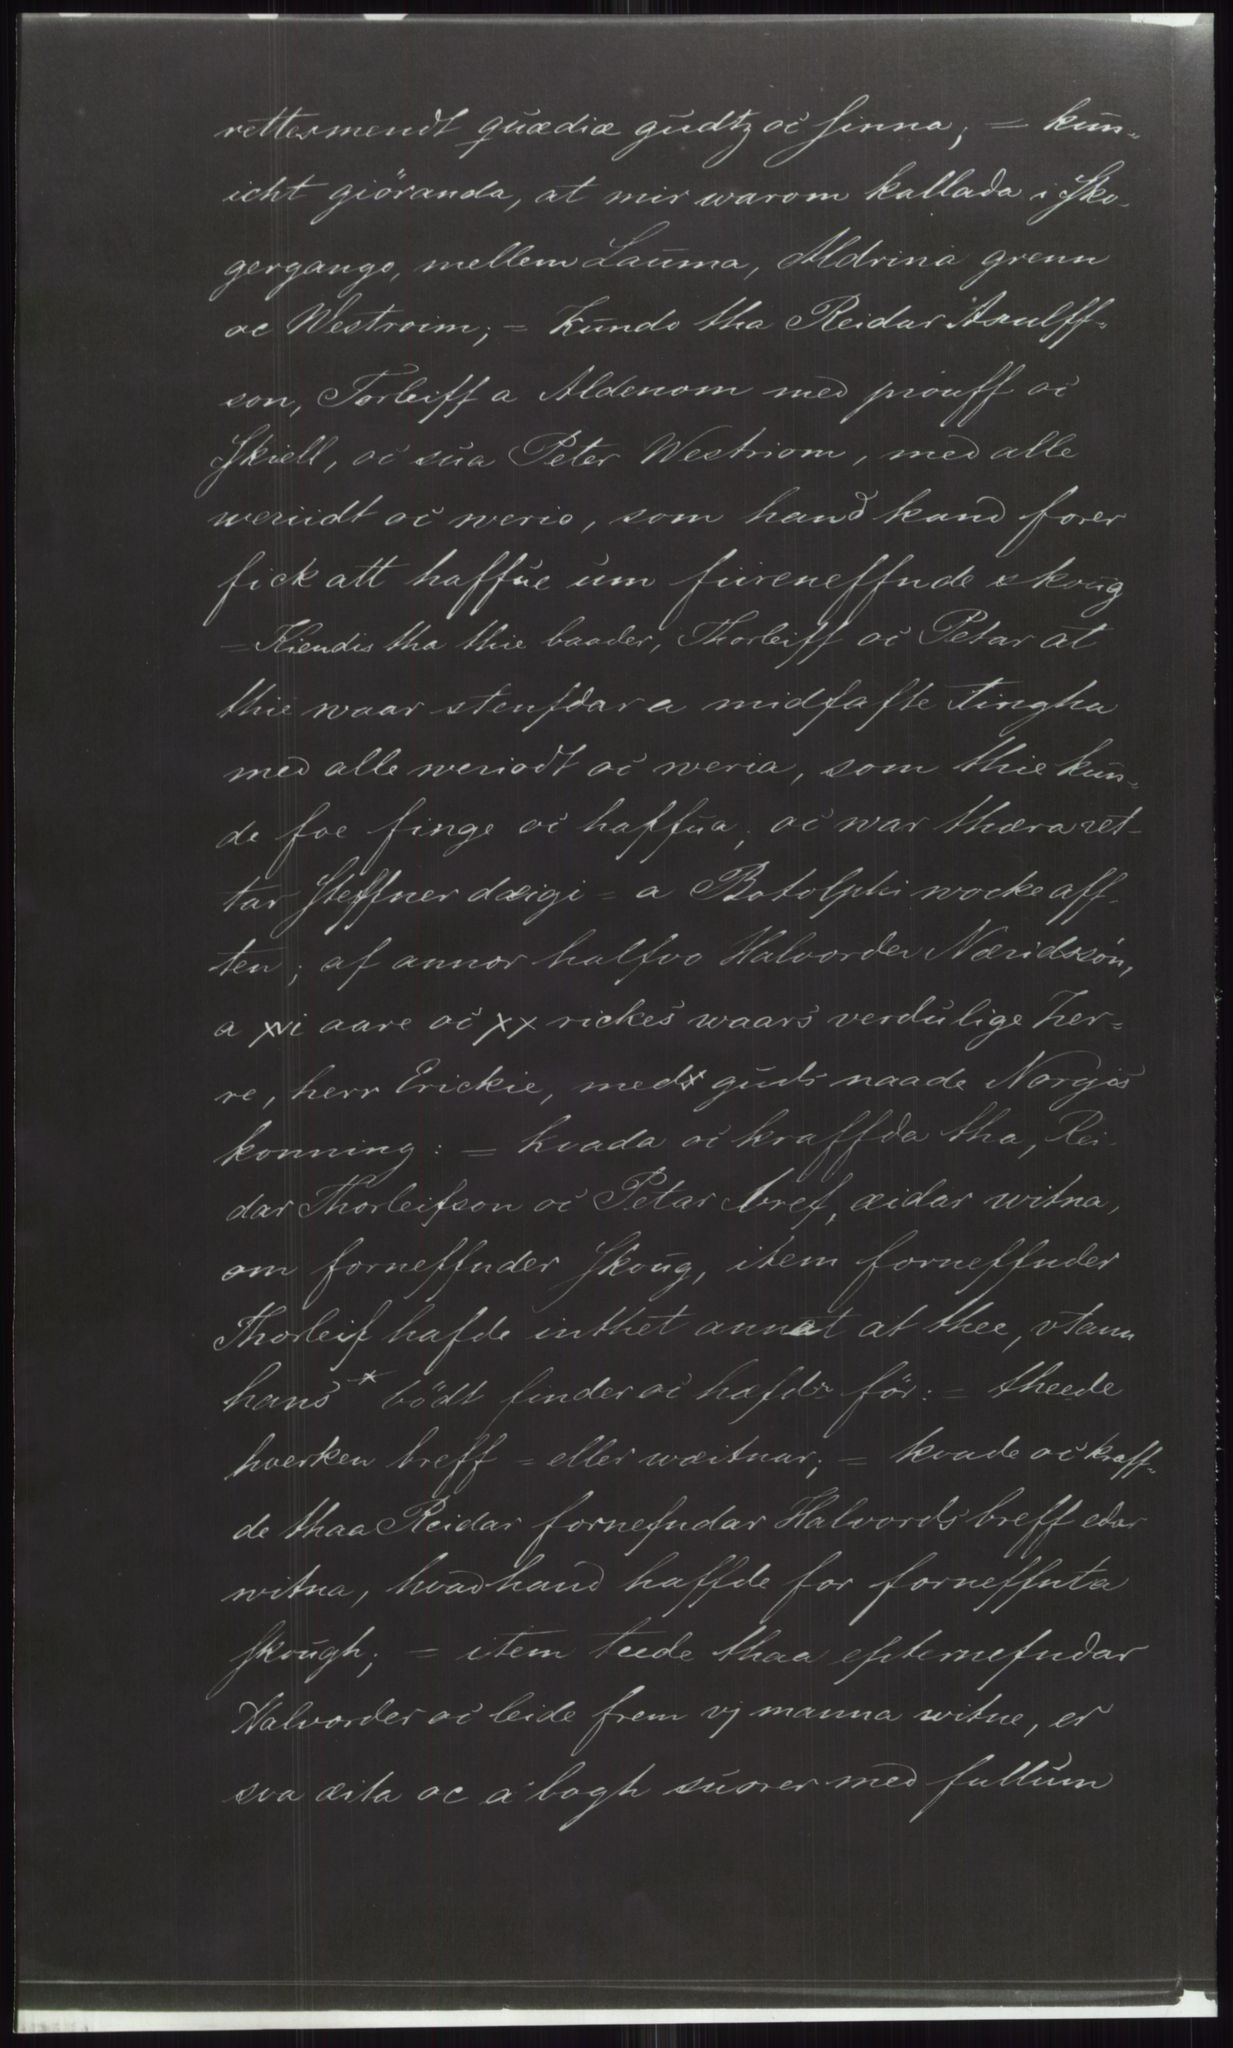 rettesmendt quædiæ gudtz oc sinna; = kun-
icht giöranda, at mir warom kallada i Sko-
gergango, mellem Lauma, Aldrina grenn
oc Westroim; = Kundo tha Reidar Asulff-
son, Torleiff a Aldenom med prouff oc
Skiell, oc sua Peter Westriom, med alle
weriidt oc werio, som hand kand forer
fick att haffue um fiireneffnde skoug
= Kiendis tha thie baader, Thorleiff oc Petar at
thie waar stenfdar a midfaste Tingha
med alle weriodt oc weria, som thie kun-
de foe finge oc haffua, oc war thæra ret-
tar Steffner dæigi = a Botolphi wocke aff-
ten; af annor halfvo Halvorder Næridssön,
a xvi aare oc xx rickes waars verdulige Her-
re, herr Erickie, medx guds naade Norgis
konning: = kvada oc kraffda tha, Rei-
dar Thorleifson oc Petar bref, æidar witna,
om forneffnder Skoug, item forneffnder
Thorleif hafde inthet annat at thee, vtann
hans x bödt finder oc hæfdr för: = theede
hverken breff = eller wæitnar; = kvade oc kraff-
de thaa Reidar fornefndar Halvords breff edar
witna, hvad hand haffde for forneffnta
skough; = item teede thaa efternefndar
Halvorder oc leide frem vj manna witne, er
sva æita oc a bogh suorer med fullum